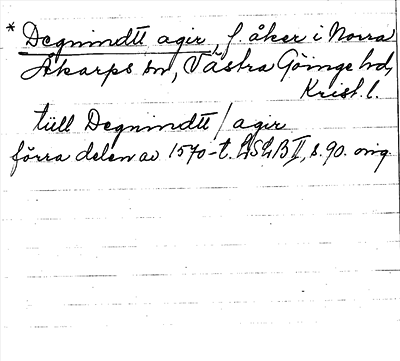 * Degnindtt agir, f. åker i Norra
Åkarps sn, Västra Göinge hd,
Krist. l.
tiill Degnindtt / agir
förra delen av 1570-t. LSLB II, s. 90. orig